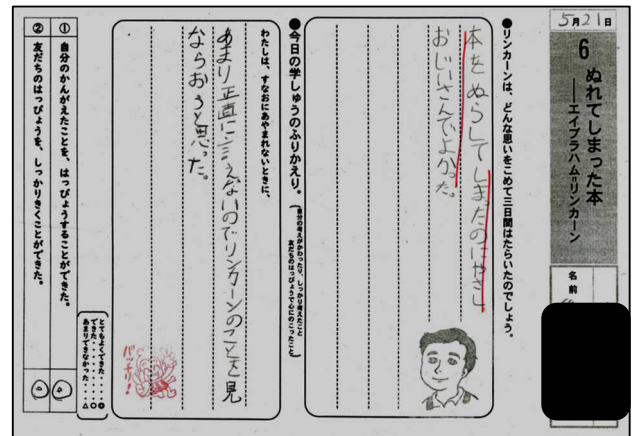 5月21日
6 ぬれてしまった本
――エイブラハム=リンカーン
名前
●リンカーンは、どんな思いをこめて三日間はたらいたのでしょう。
本をぬらしてしまったのにやさしい
おじいさんでよかった。
●今日の学しゅうのふりかえり。
(自分の考えがかわったり、しっかり考えたこと
友だちのはっぴょうで心にのこったこと)
わたしは、すなおにあやまれないときに、
あまり正直に言えないのでリンカーンのことを見
ならおうと思った。
バッチリ!
とてもよくできた・・・・◎
できた・・・・・・・・○
あまりできなかった・・・△
① 自分のかんがえたことを、はっぴょうすることができた。 ◎
② 友だちのはっぴょうを、しっかりきくことができた。 ◎